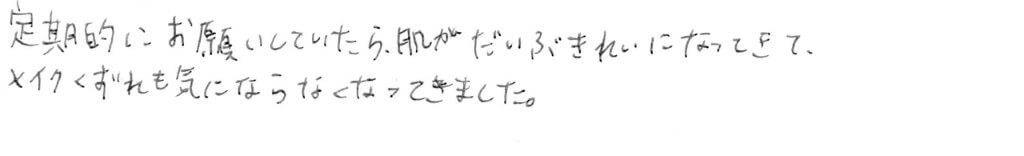 定期的にお願いしていたら、肌がだいぶきれいになってきて、
メイクくずれも気にならなくなってきました。